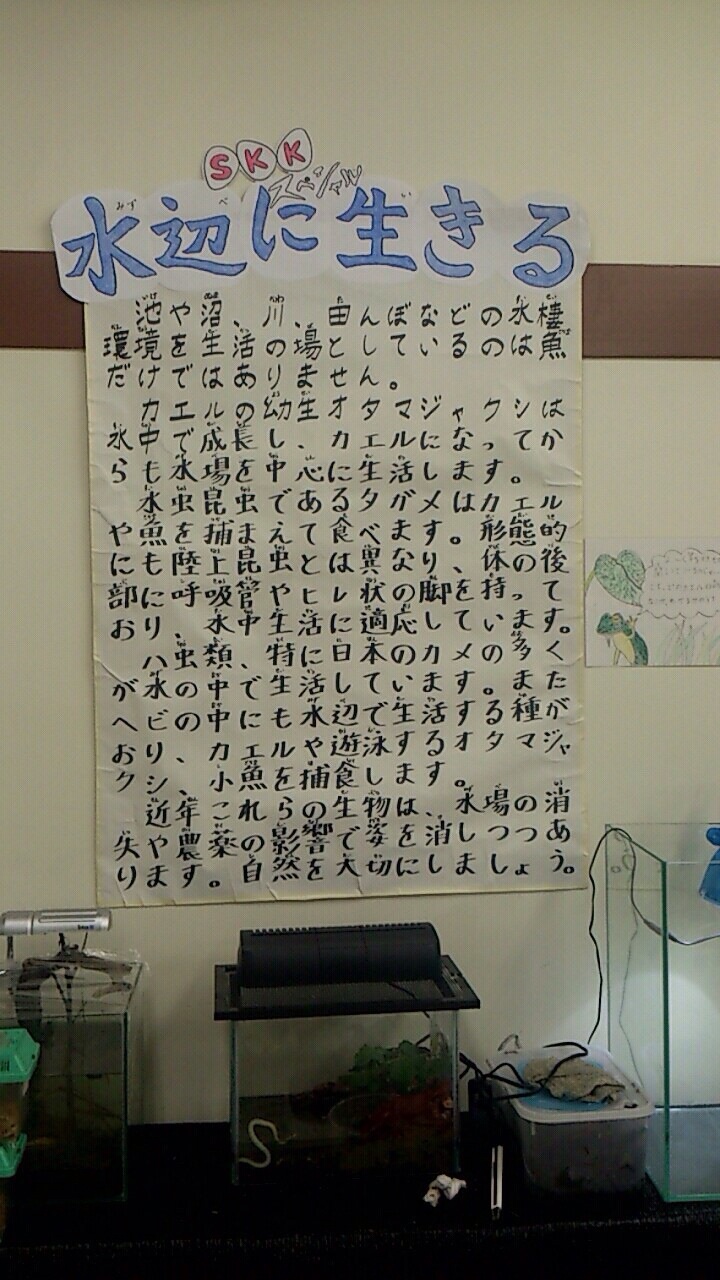 SKK
スペシャル
水辺に生きる
池や沼、川、田んぼなどの水棲
環境を生活の場としているのは魚
だけではありません。
カエルの幼生、オタマジャクシは
水中で成長し、カエルになってか
らも水場を中心に生活します。
水虫昆虫であるタガメはカエル
や魚を捕まえて食べます。形態的
にも陸上昆虫とは異なり、体の後
部に呼吸管やヒレ状の脚を持って
おり、水中生活に適応しています。
ハ虫類、特に日本のカメの多く
が水の中で生活しています。また
ヘビの中にも水辺で生活する種が
おり、カエルや遊泳するオタマジャ
クシ、小魚を捕食します。
近年、これらの生物は、水場の消
失や農薬の影響で姿を消しつつあ
ります。自然を大切にしましょう。